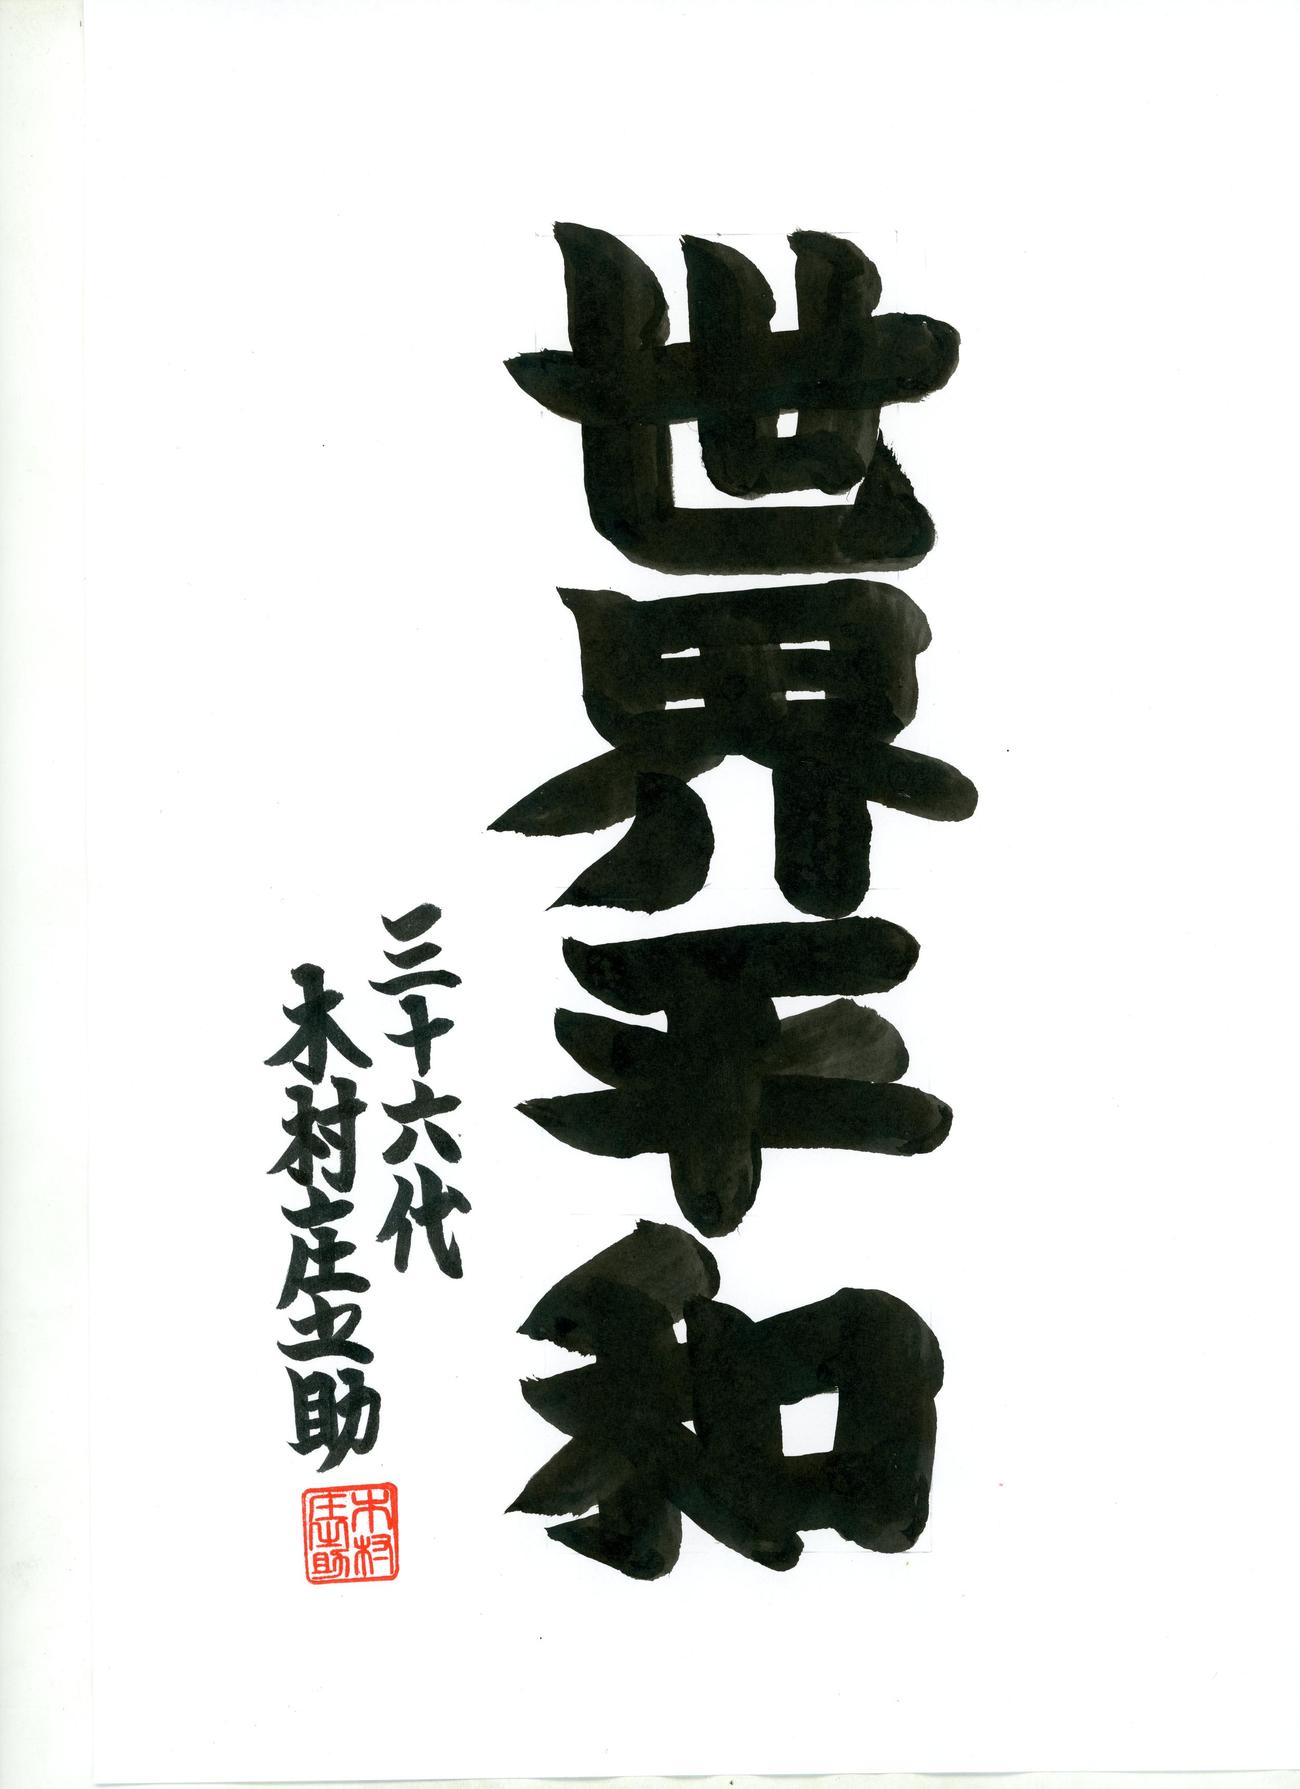 世界平和
三十六代
木村庄之助
木村
庄之助